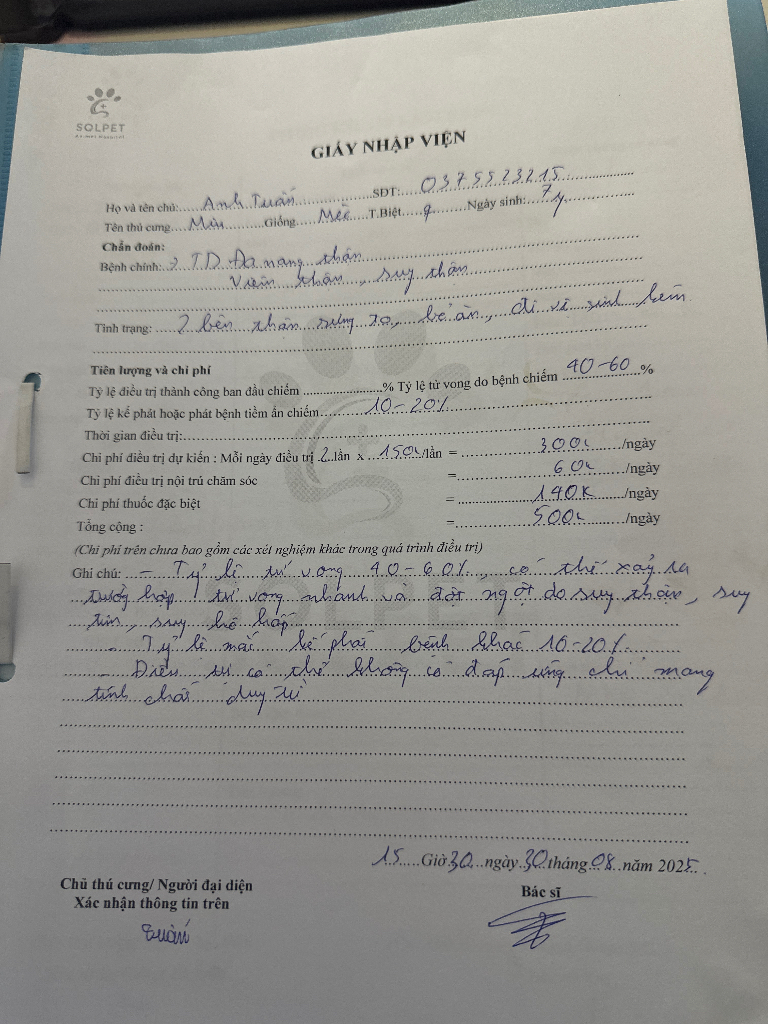 SOLPET
Animal Hospital
GIẤY NHẬP VIỆN
Họ và tên chủ: Anh Tuấn SĐT: 0375523215
Tên thú cưng Miu Giống Mèo T.Biệt ♀ Ngày sinh: 7y
Chẩn đoán:
Bệnh chính: TD Đa nang thận
Viêm thận, suy thận
Tình trạng: 2 bên thận sưng to, bỏ ăn, đi vệ sinh kém
Tiên lượng và chi phí
Tỷ lệ điều trị thành công ban đầu chiếm ........% Tỷ lệ tử vong do bệnh chiếm 40-60 %
Tỷ lệ kế phát hoặc phát bệnh tiềm ẩn chiếm 10-20%
Thời gian điều trị:
Chi phí điều trị dự kiến : Mỗi ngày điều trị 2 lần x 150k/lần = 300k /ngày
Chi phí điều trị nội trú chăm sóc = 60k /ngày
Chi phí thuốc đặc biệt = 140k /ngày
Tổng cộng : = 500k /ngày
(Chi phí trên chưa bao gồm các xét nghiệm khác trong quá trình điều trị)
Ghi chú: - Tỷ lệ tử vong 40-60%, có thể xảy ra
trường hợp tử vong nhanh và đột ngột do suy thận, suy
tim, suy hô hấp
- Tỷ lệ mắc kế phát bệnh khác 10-20%
- Điều trị có thể không có đáp ứng chỉ mang
tính chất duy trì
15 Giờ 30 ngày 30 tháng 08 năm 2025
Chủ thú cưng/ Người đại diện
Xác nhận thông tin trên
Bác sĩ
Tuấn